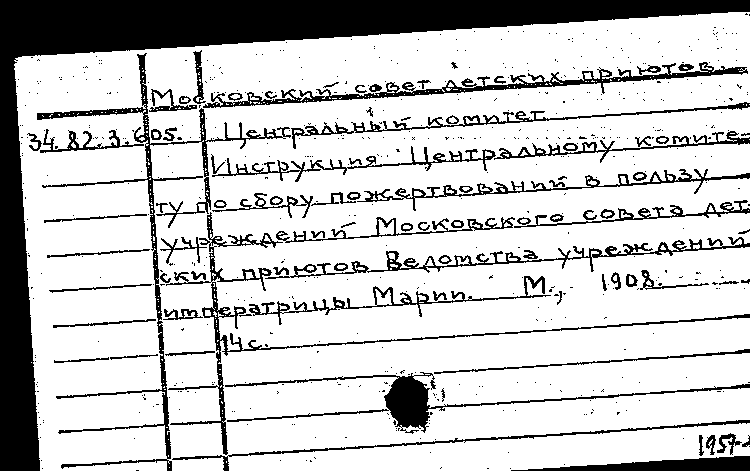 Московский совет детских приютов.
34.82.3.605. Центральный комитет
Инструкция Центральному комите-
ту по сбору пожертвований в пользу
учреждений Московского совета дет-
ских приютов Ведомства учреждений
императрицы Марии. М., 1908.
14 с.
1957-